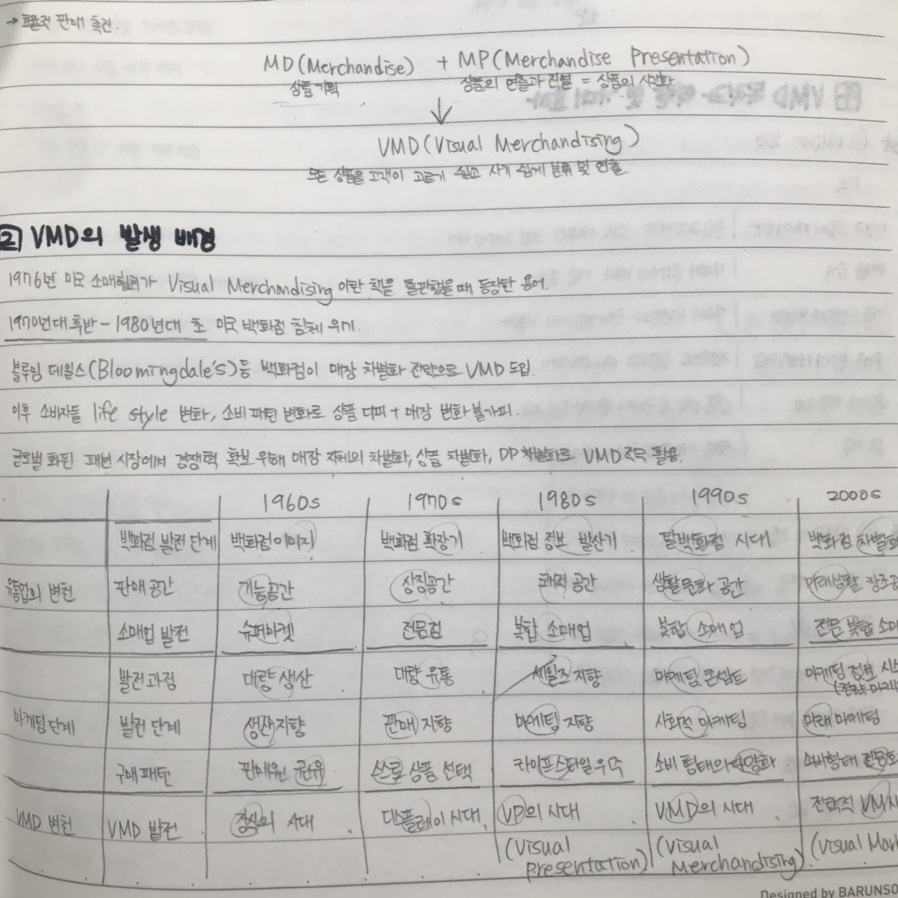 → 효율적 판매 촉진.
MD(Merchandise) + MP(Merchandise Presentation)
상품기획 상품의 연출과 진열 = 상품의 시각화
↓
VMD(Visual Merchandising)
모든 상품을 고객이 고르기 쉽고 사기 쉽게 분류 및 연출
2 VMD의 발생 배경
1976년 미국 소매협회가 Visual Merchandising 이란 책을 출판했을 때 등장한 용어.
1970년대 후반 - 1980년대 초 미국 백화점 침체 위기.
블루밍 데일스(Bloomingdale's)등 백화점이 매장 차별화 전략으로 VMD 도입.
이후 소비자들 life style 변화, 소비 패턴 변화로 상품 디피 + 매장 변화 불가피.
글로벌 화된 패션 시장에서 경쟁력 확보 위해 매장 자체의 차별화, 상품 차별화, DP차별화로 VMD 적극 활용.
1960s 1970s 1980s 1990s 2000s
백화점 발전 단계 백화점이미지 백화점 확장기 백화점 정보 발산기 탈백화점 시대 백화점 차별화
유통업의 변천 판매 공간 기능공간 상징공간 쾌적 공간 생활문화 공간 미래생활 창조공
소매업 발전 슈퍼마켓 전문점 복합 소매업 복합 소매업 전문 복합 소매
발전과정 대량 생산 대량 유통 세일즈 지향 마케팅 콘셉트 마케팅 정보 시스
마케팅 단계 발전 단계 생산지향 판매 지향 마케팅 지향 사회적 마케팅 미래 마케팅
구매 패턴 판매원 권유 스스로 상품 선택 라이프스타일 위주 소비 형태의 다양화 소비형태 전문화
VMD 변천 VMD 발전 장식의 시대 디스플레이 시대 VP의 시대 VMD의 시대 전략적 VM
(Visual Presentation) (Visual Merchandising) (Visual Mar
Designed by BARUNSO